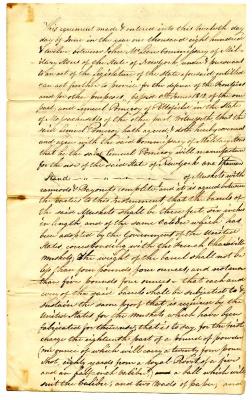 This agreement made & entered into this twentieth
day of June in the year one thousand eight hundred
& twelve between John McLean commissary of mil-
itary stores of the State of Newyork under & pursuant
to an act of the legislature of the state aforesaid entitled
an act further to provide for the defence of the frontiers
and for other purposes, passed of the one
part, and Lemuel Pomeroy of Pittsfield in the state
of Massachusetts of the other part Witnesseth that the
said Lemuel Pomeroy hath agreed & doth hereby covenant
and agree with the said commissary as follows
that he the said Lemuel Pomeroy will manufacture
for the use of the said State of Newyork
Stand of Muskets with
ramrods & Bayonets complete and it is agreed between
the parties to this instrument that the barrels of
the said Muskets shall be three feet six inches
in length and of the same calibre which has
been adopted by the Government of the United
States corresponding with the French Charleville
muskets, the weight of the barrel shall not be
less than four pounds four ounces and not more
than five pounds four ounces & that each and
every of the said Barrels shall be subjected to &
sustain the same proof that is required by the
United States for the Muskets which have been
fabricated for their use, that is to say, for the first
charge the eighteenth part of a pound of powder
one ounce of which will carry a twenty four pound
shot eighty yards from a
and a ball which will
suit the calibre, and two wads of paper, and